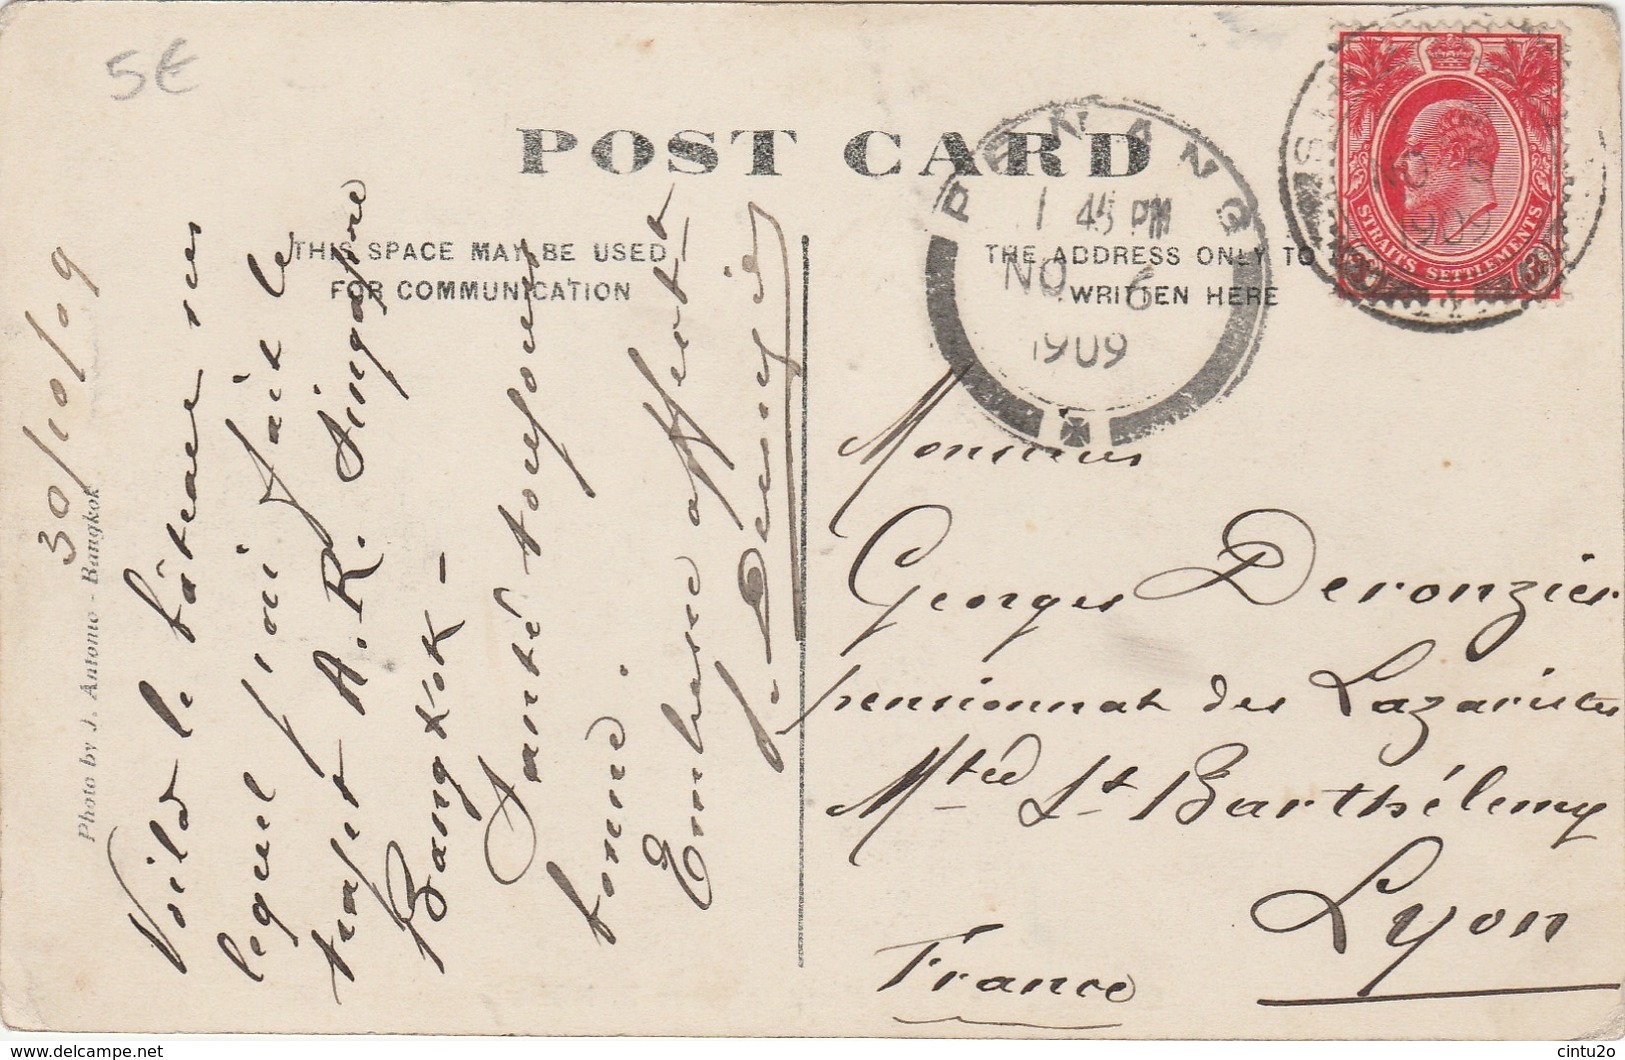 5€
POST CARD
THIS SPACE MAY BE USED
FOR COMMUNICATION
THE ADDRESS ONLY TO
WRITTEN HERE
PENANG
1 45 PM
NO 6
1909
STRAITS SETTLEMENTS
NO 5
1909
30/10/09
Photo by J. Antonio - Bangkok
Voilà le bâteau sur
lequel j'ai fait le
trajet A. R. Singapore
Bangkok -
Santé toujours
bonne.
Embrasse affectt
Monsieur
Georges Deronzier
pensionnat des Lazaristes
Mtée St Barthélemy
Lyon
France
www.delcampe.net
cintu2o